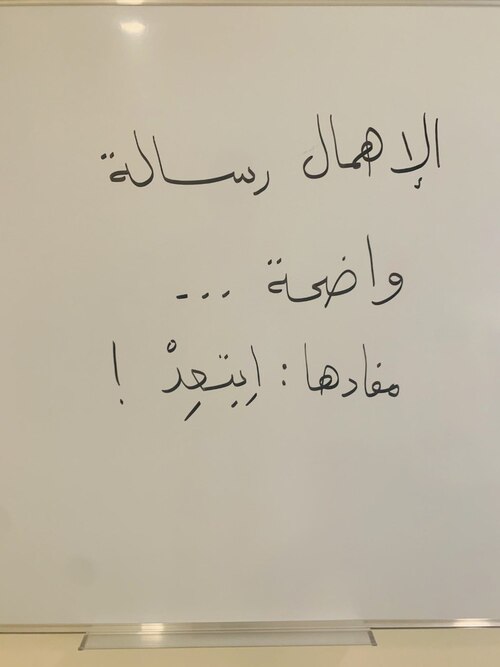 الإهمال رسالة
واضحة ...
مفادها : اِبتعِدْ !